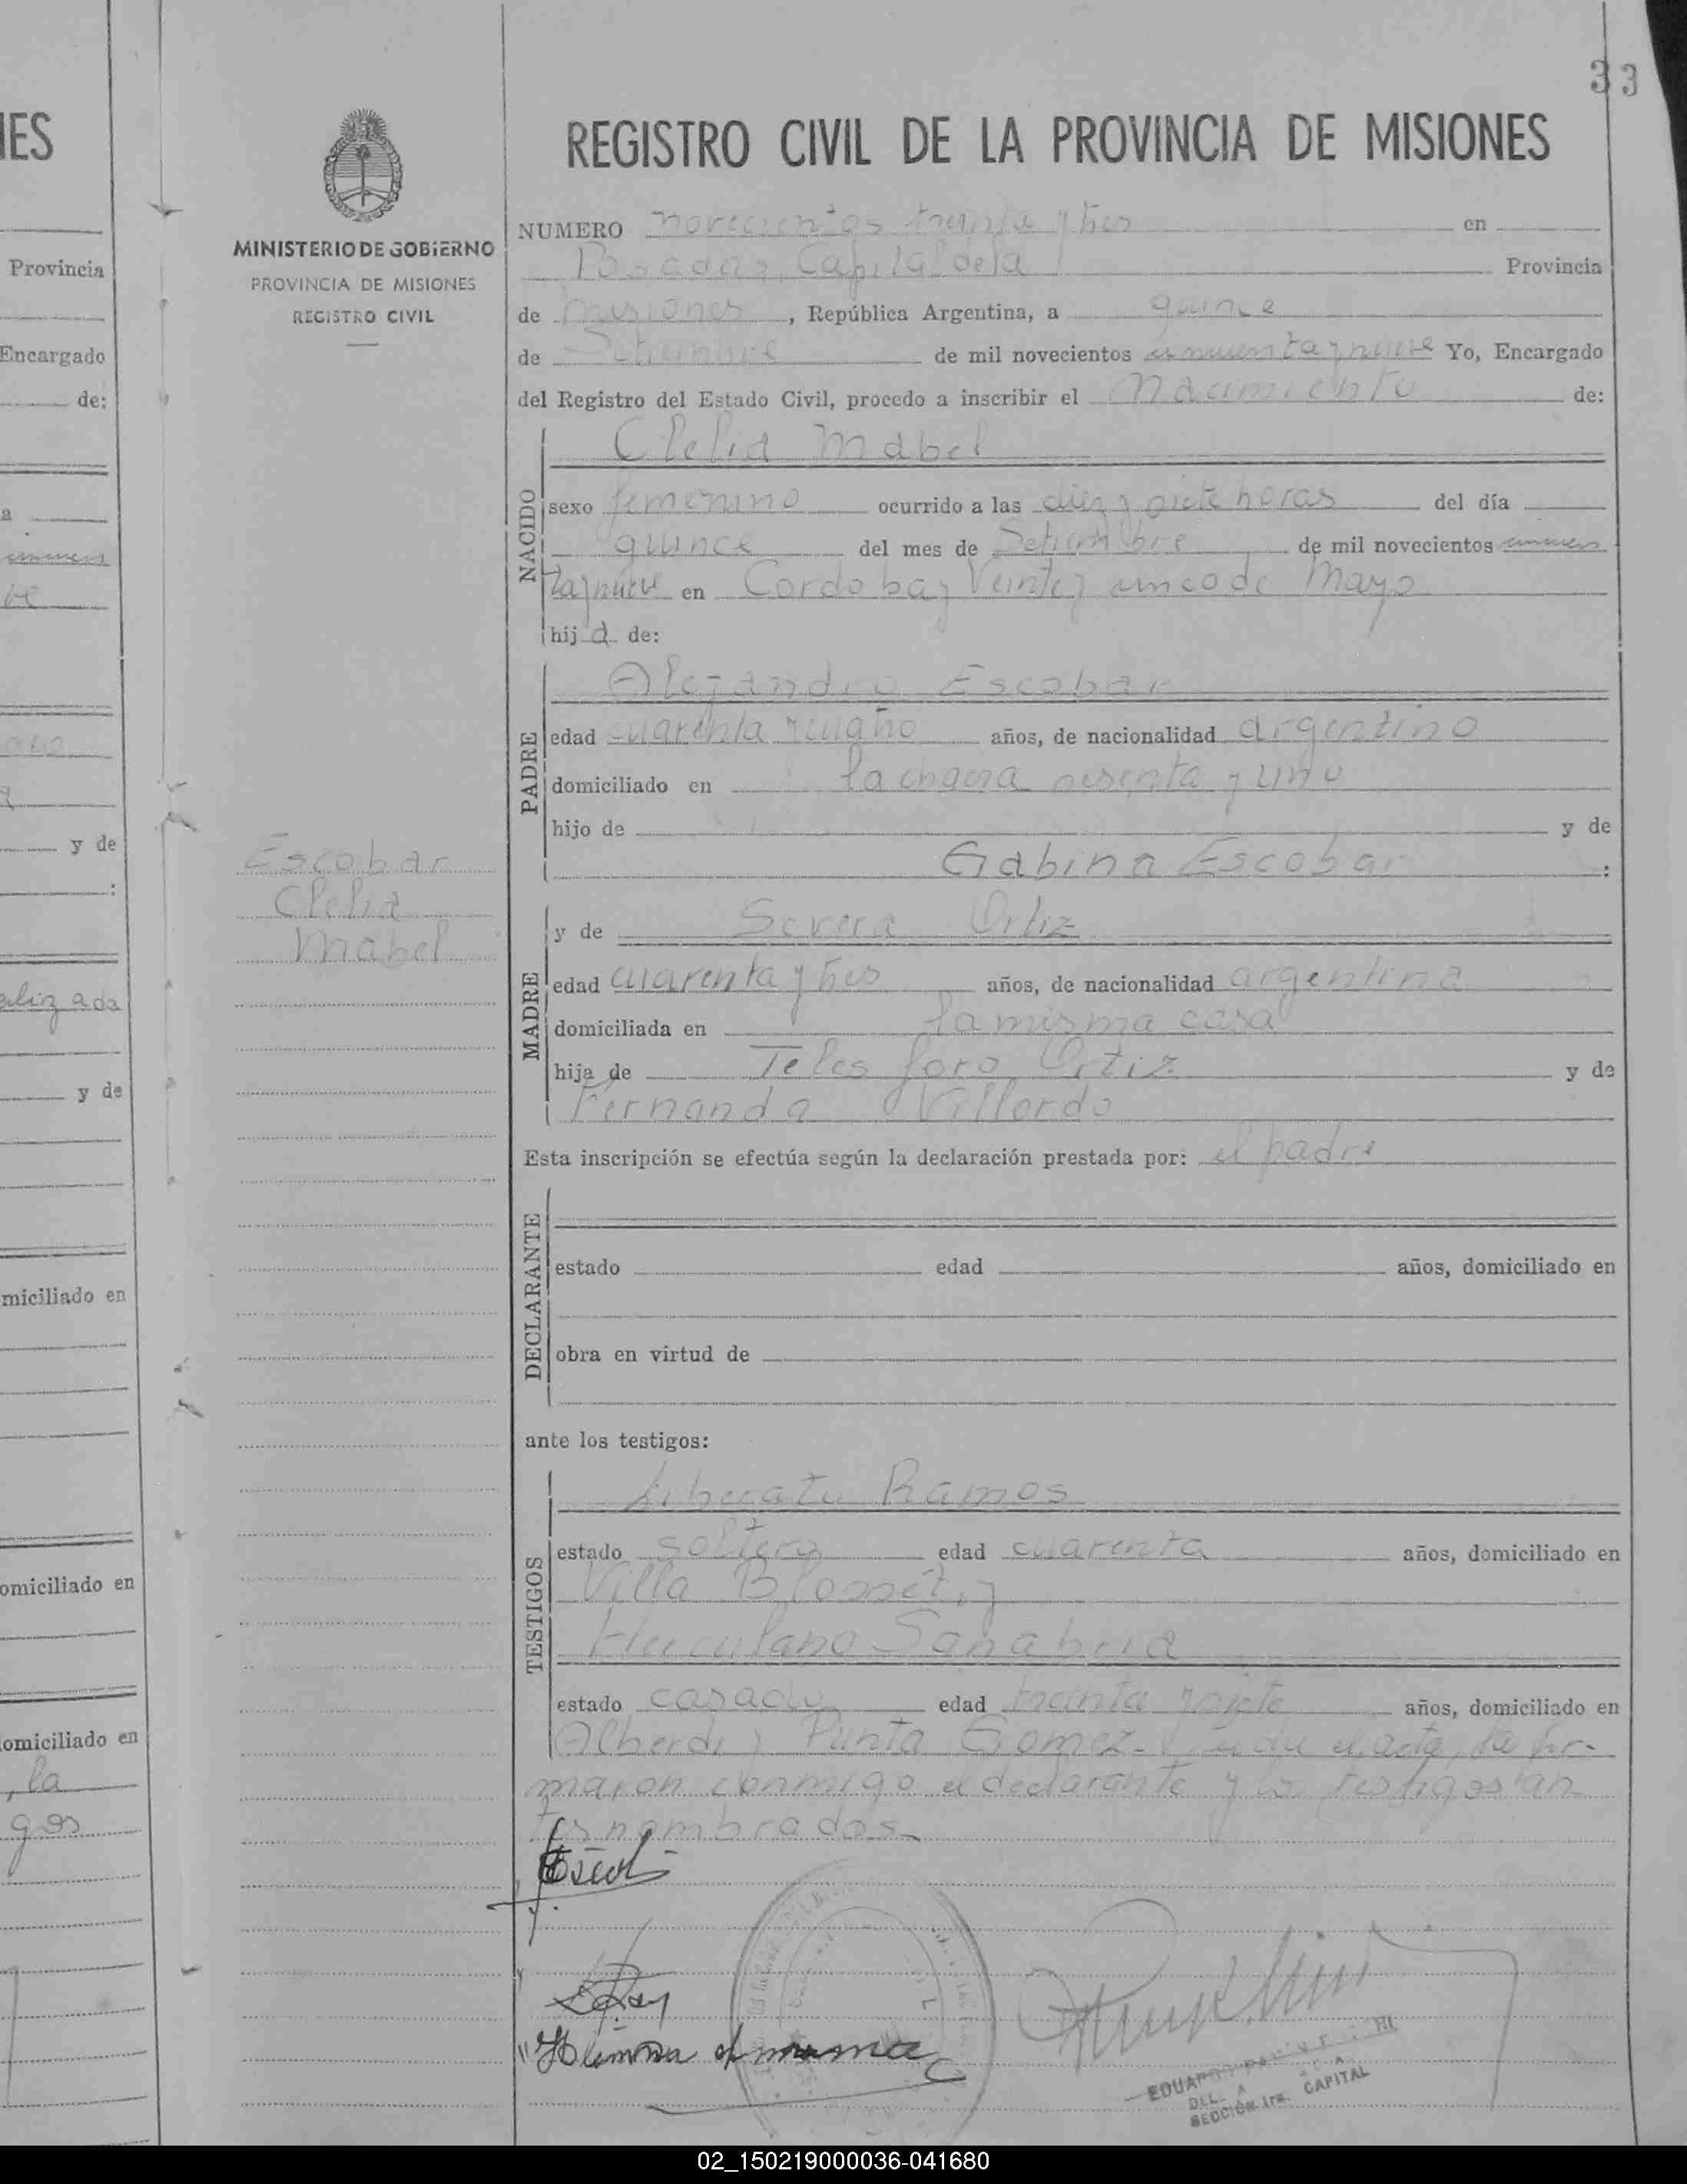 33
REGISTRO CIVIL DE LA PROVINCIA DE MISIONES
MINISTERIO DE GOBIERNO
PROVINCIA DE MISIONES
REGISTRO CIVIL
NUMERO novecientos treinta y tres en
Posadas, Capital de la Provincia
de Misiones, República Argentina, a quince
de Setiembre de mil novecientos cincuenta y nueve Yo, Encargado
del Registro del Estado Civil, procedo a inscribir el Nacimiento de:
NACIDO
Clelia Mabel
sexo femenino ocurrido a las diez y siete horas del día
quince del mes de Setiembre de mil novecientos cincuen
ta y nueve en Cordoba y Veinte y cinco de Mayo
hija de:
PADRE
Alejandro Escobar
edad cuarenta y cuatro años, de nacionalidad argentino
domiciliado en la chacra sesenta y uno
hijo de y de
Gabina Escobar :
Escobar
Clelia
Mabel
MADRE
y de Severa Ortiz
edad cuarenta y tres años, de nacionalidad argentina
domiciliada en la misma casa
hija de Telesforo Ortiz y de
Fernanda Villordo
Esta inscripción se efectúa según la declaración prestada por: el padre
DECLARANTE
estado edad años, domiciliado en
obra en virtud de
ante los testigos:
TESTIGOS
Liberato Ramos
estado soltero edad cuarenta años, domiciliado en
Villa Blosset, y
Herculano Sanabria
estado casado edad treinta y siete años, domiciliado en
Alberdi y Punta Gomez.- Leida el acta, la fir-
maron conmigo el declarante y los testigos an
tes nombrados.-
SECCIÓN 1ra. CAPITAL
IES
Provincia
Encargado
de:
a
cincuen
y de
:
alizada
y de
miciliado en
omiciliado en
omiciliado en
, la
gos
02_150219000036-041680